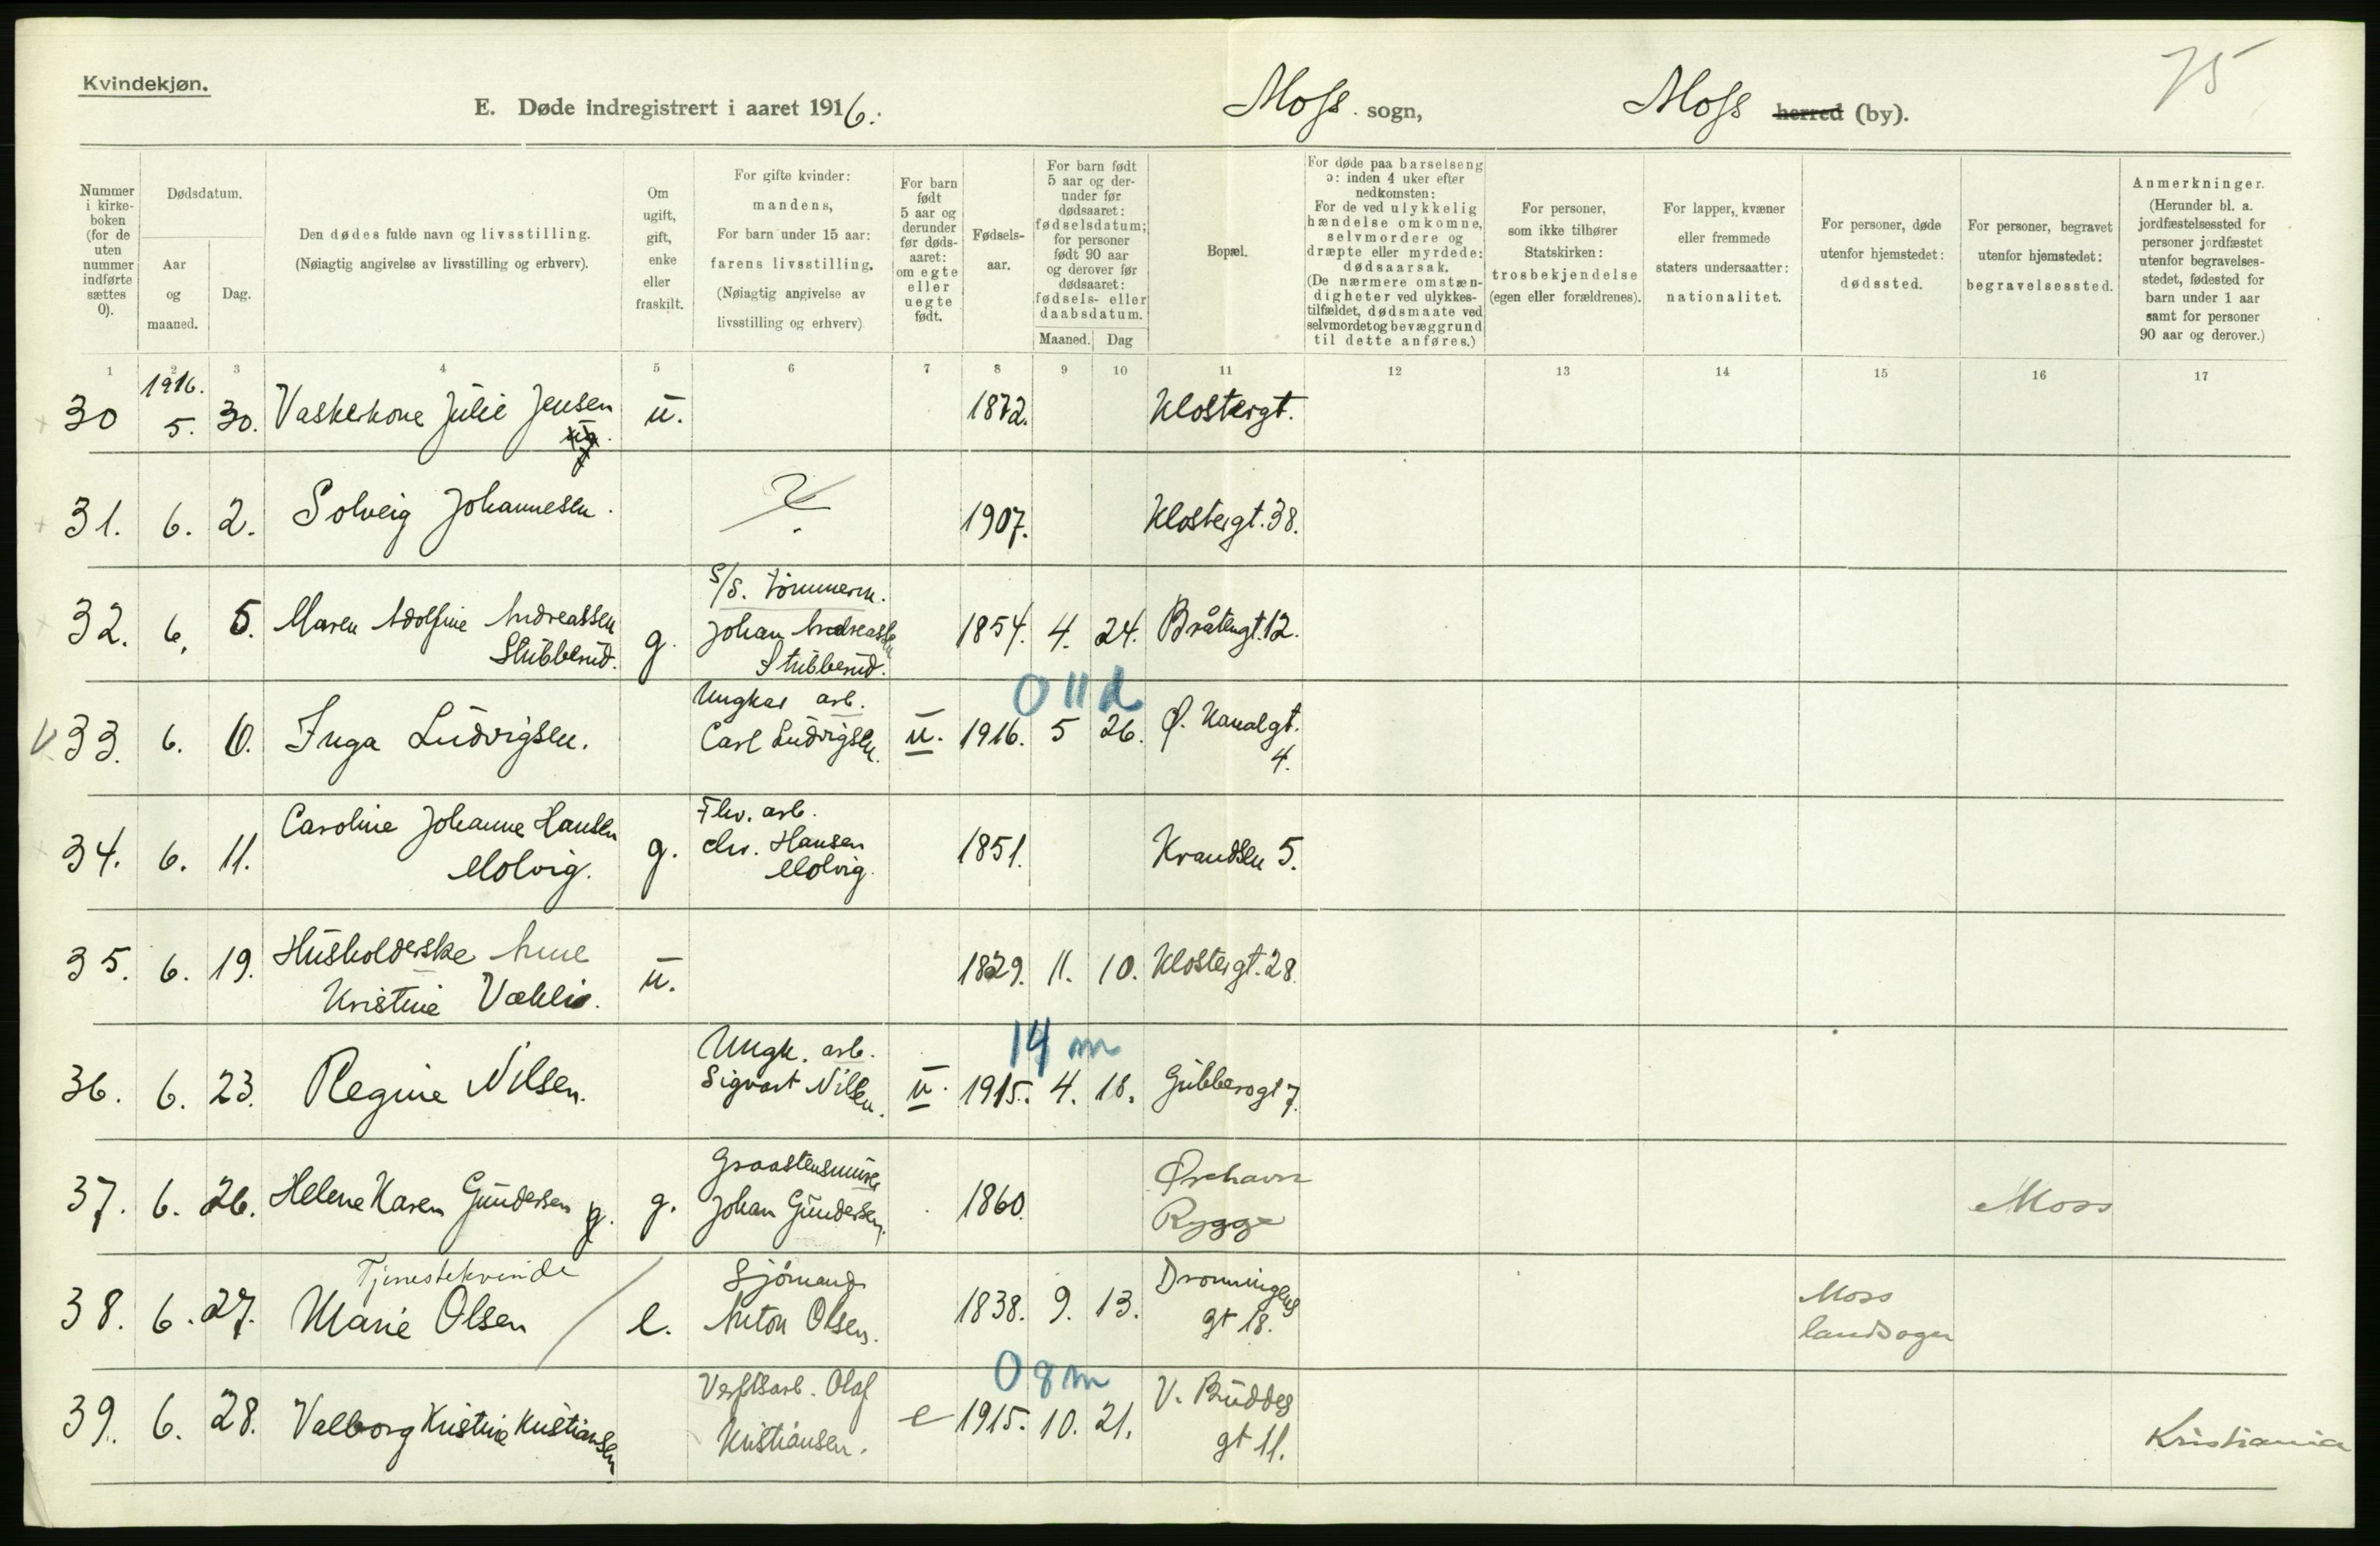 75
Kvindekjøn.
E. Døde indregistrert i aaret 1916.
Moss sogn, Moss herred (by).
Nummer i kirke-boken (for de uten nummer indførte sættes 0).
Dødsdatum.
Aar og maaned.
Dag.
Den dødes fulde navn og livsstilling.
(Nøiagtig angivelse av livsstilling og erhverv).
Om ugift, gift, enke eller fraskilt.
For gifte kvinder: mandens,
For barn under 15 aar: farens livsstilling.
(Nøiagtig angivelse av livsstilling og erhverv)
For barn født 5 aar og derunder før døds-aaret: om egte eller uegte født.
Fødsels-aar.
For barn født 5 aar og der-under før dødsaaret: fødselsdatum; for personer født 90 aar og derover før dødsaaret: fødsels- eller daabsdatum.
Maaned. Dag
Bopæl.
For døde paa barselseng ɔ: inden 4 uker efter nedkomsten:
For de ved ulykkelig hændelse omkomne, selvmordere og dræpte eller myrdede: dødsaarsak.
(De nærmere omstæn-digheter ved ulykkes-tilfældet, dødsmaate ved selvmordet og bevæggrund til dette anføres.)
For personer, som ikke tilhører Statskirken: trosbekjendelse (egen eller forældrenes).
For lapper, kvæner eller fremmede staters undersaatter: nationalitet.
For personer, døde utenfor hjemstedet: dødssted.
For personer, begravet utenfor hjemstedet: begravelsessted.
Anmerkninger.
(Herunder bl. a. jordfæstelsessted for personer jordfæstet utenfor begravelses-stedet, fødested for barn under 1 aar samt for personer 90 aar og derover.)
1 2 3 4 5 6 7 8 9 10 11 12 13 14 15 16 17
1916.
30 5. 30. Vaskerkone Julie Jensen u. 1872. Klostergt.
31. 6. 2. Solveig Johannesen. 1907. Klostergt. 38.
S/S. tømmerm.
32. 6. 5. Maren Adolfine Andreassen g. Johan Andreassen 1854. 4. 24. Bråtengt. 12.
Stubberud. Stubberud.
0 11 d
Ungkar arb.
33. 6. 6. Inga Ludvigsen. Carl Ludvigsen. u. 1916. 5 26. Ø. Kanalgt.
4.
Fhv. arb.
34. 6. 11. Caroline Johanne Hansen g. Chr. Hansen 1851. Krandsen 5.
Molvig. Molvig.
35. 6. 19. Husholderske Anne u. 1829. 11. 10. Klostergt. 28.
Kristine
14 m
Ungk. arb.
36. 6. 23. Regine Nilsen. Sigvart Nilsen. u. 1915. 4. 18. Gubberogt 7.
37. 6. 26. Helene Karen Gundersen g. g. Johan Gundersen. 1860. Ørehavn Moss
Rygge
Tjenestekvinde Sjømand
38. 6. 27. Marie Olsen e. Anton Olsen. 1838. 9. 13. Dronningens Moss
gt 18. landsogn
0 8 m
Verftsarb. Olaf
39. 6. 28. Valborg Kristine Kristiansen e 1915. 10. 21. V. Buddes Kristiania
Kristiansen. gt 11.